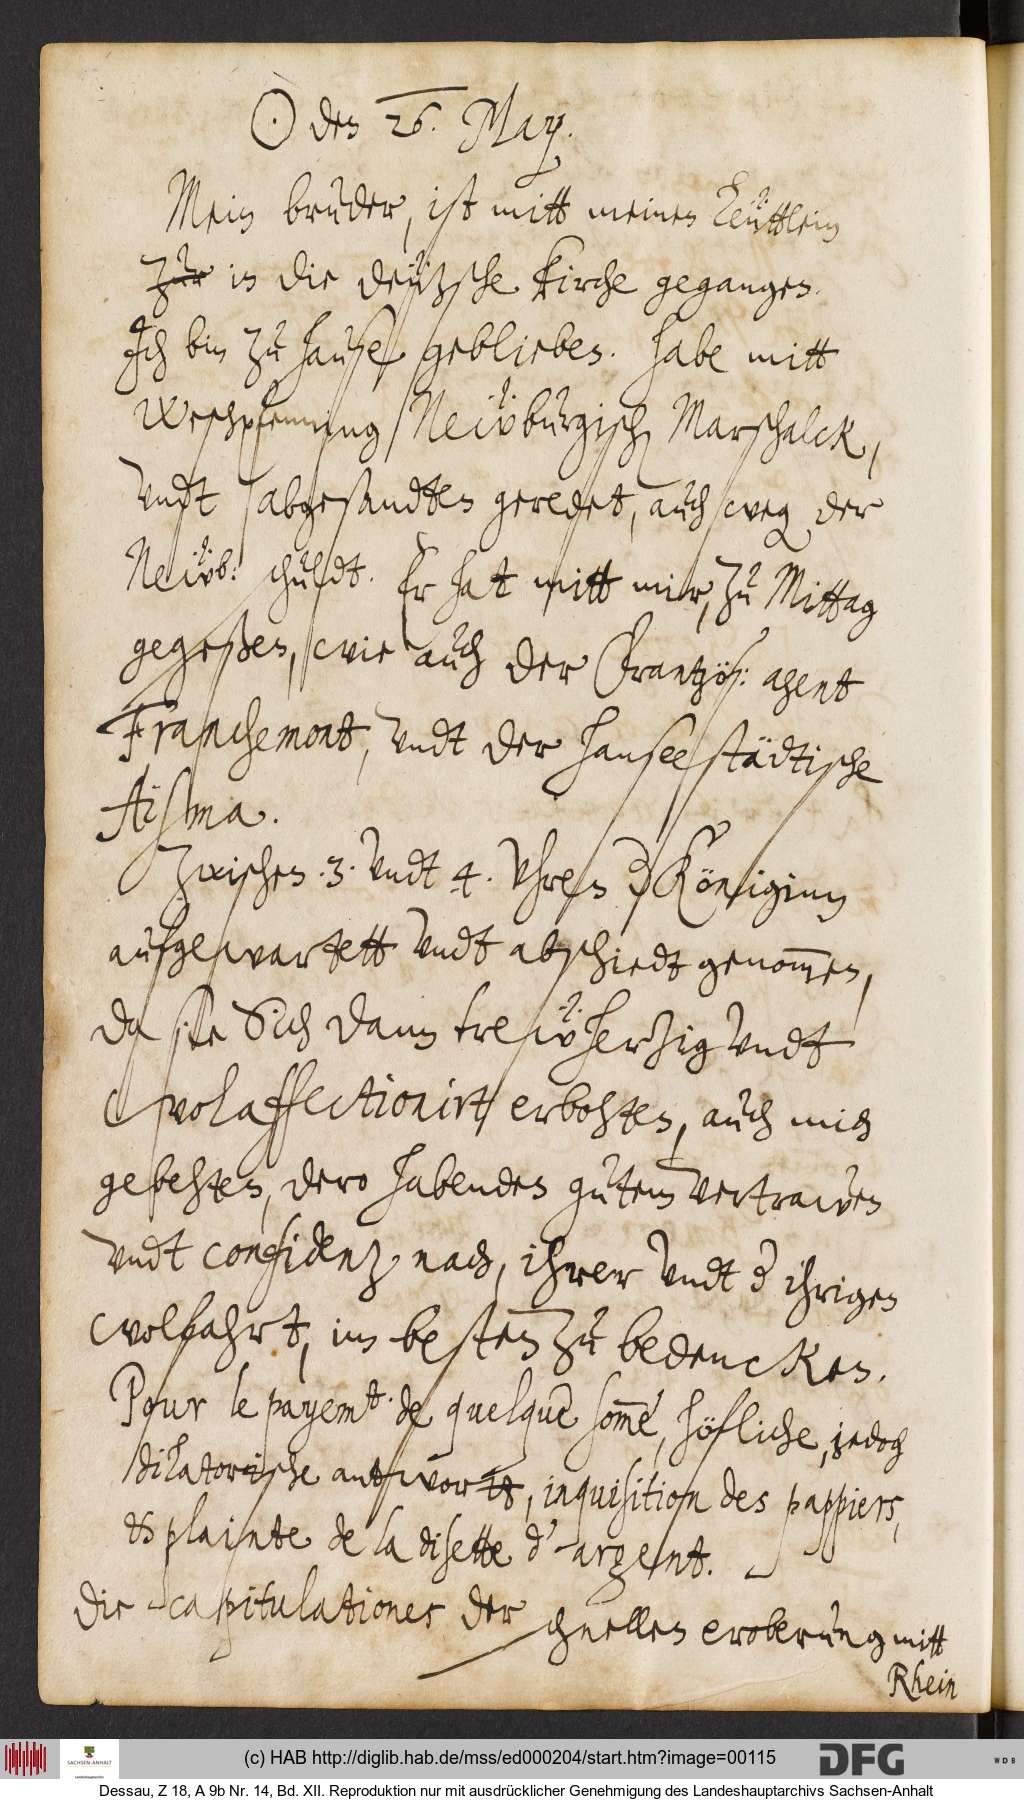 ☉ den 26. May.
Mein bruder, ist mitt meinen Leüttlein
zur in die deützsche kirche gegangen.
Ich bin zu hause geblieben. habe mitt
Weschpfenning Neüburgisch Marschalck,
vndt abgesandten geredet, auch weg der
Neüb: schuldt. Er hat mitt mir, zu Mittag
gegeßen, wie auch der Frantzös: agent
Franchemont, vndt der hanseestädtische
Aißma.
Zwischen .3. vndt 4. vhren d Königinn
aufgewartett vndt abschiedt genom̅en,
da sie Sich dann trewherzig vndt
wolaffectionirt erbohten, auch mich
gebehten, dero habenden gutem vertrawen
vndt confidentz nach, ihrer vndt d ihrigen
wolfahrt, im besten zu bedencken.
Pour le payemt. de quelque som̅e, höfliche, jedoch
dilatorische antwortt, inquisition des pappiers,
& plainte de la disette d'argent.
Die capitulationes der schnellen eroberung mitt
Rhein
(c) HAB http://diglib.hab.de/mss/ed000204/start.htm?image=00115
SACHSEN-ANHALT
DFG
WDB
Dessau, Z 18, A 9b Nr. 14, Bd. XII. Reproduktion nur mit ausdrücklicher Genehmigung des Landeshauptarchivs Sachsen-Anhalt